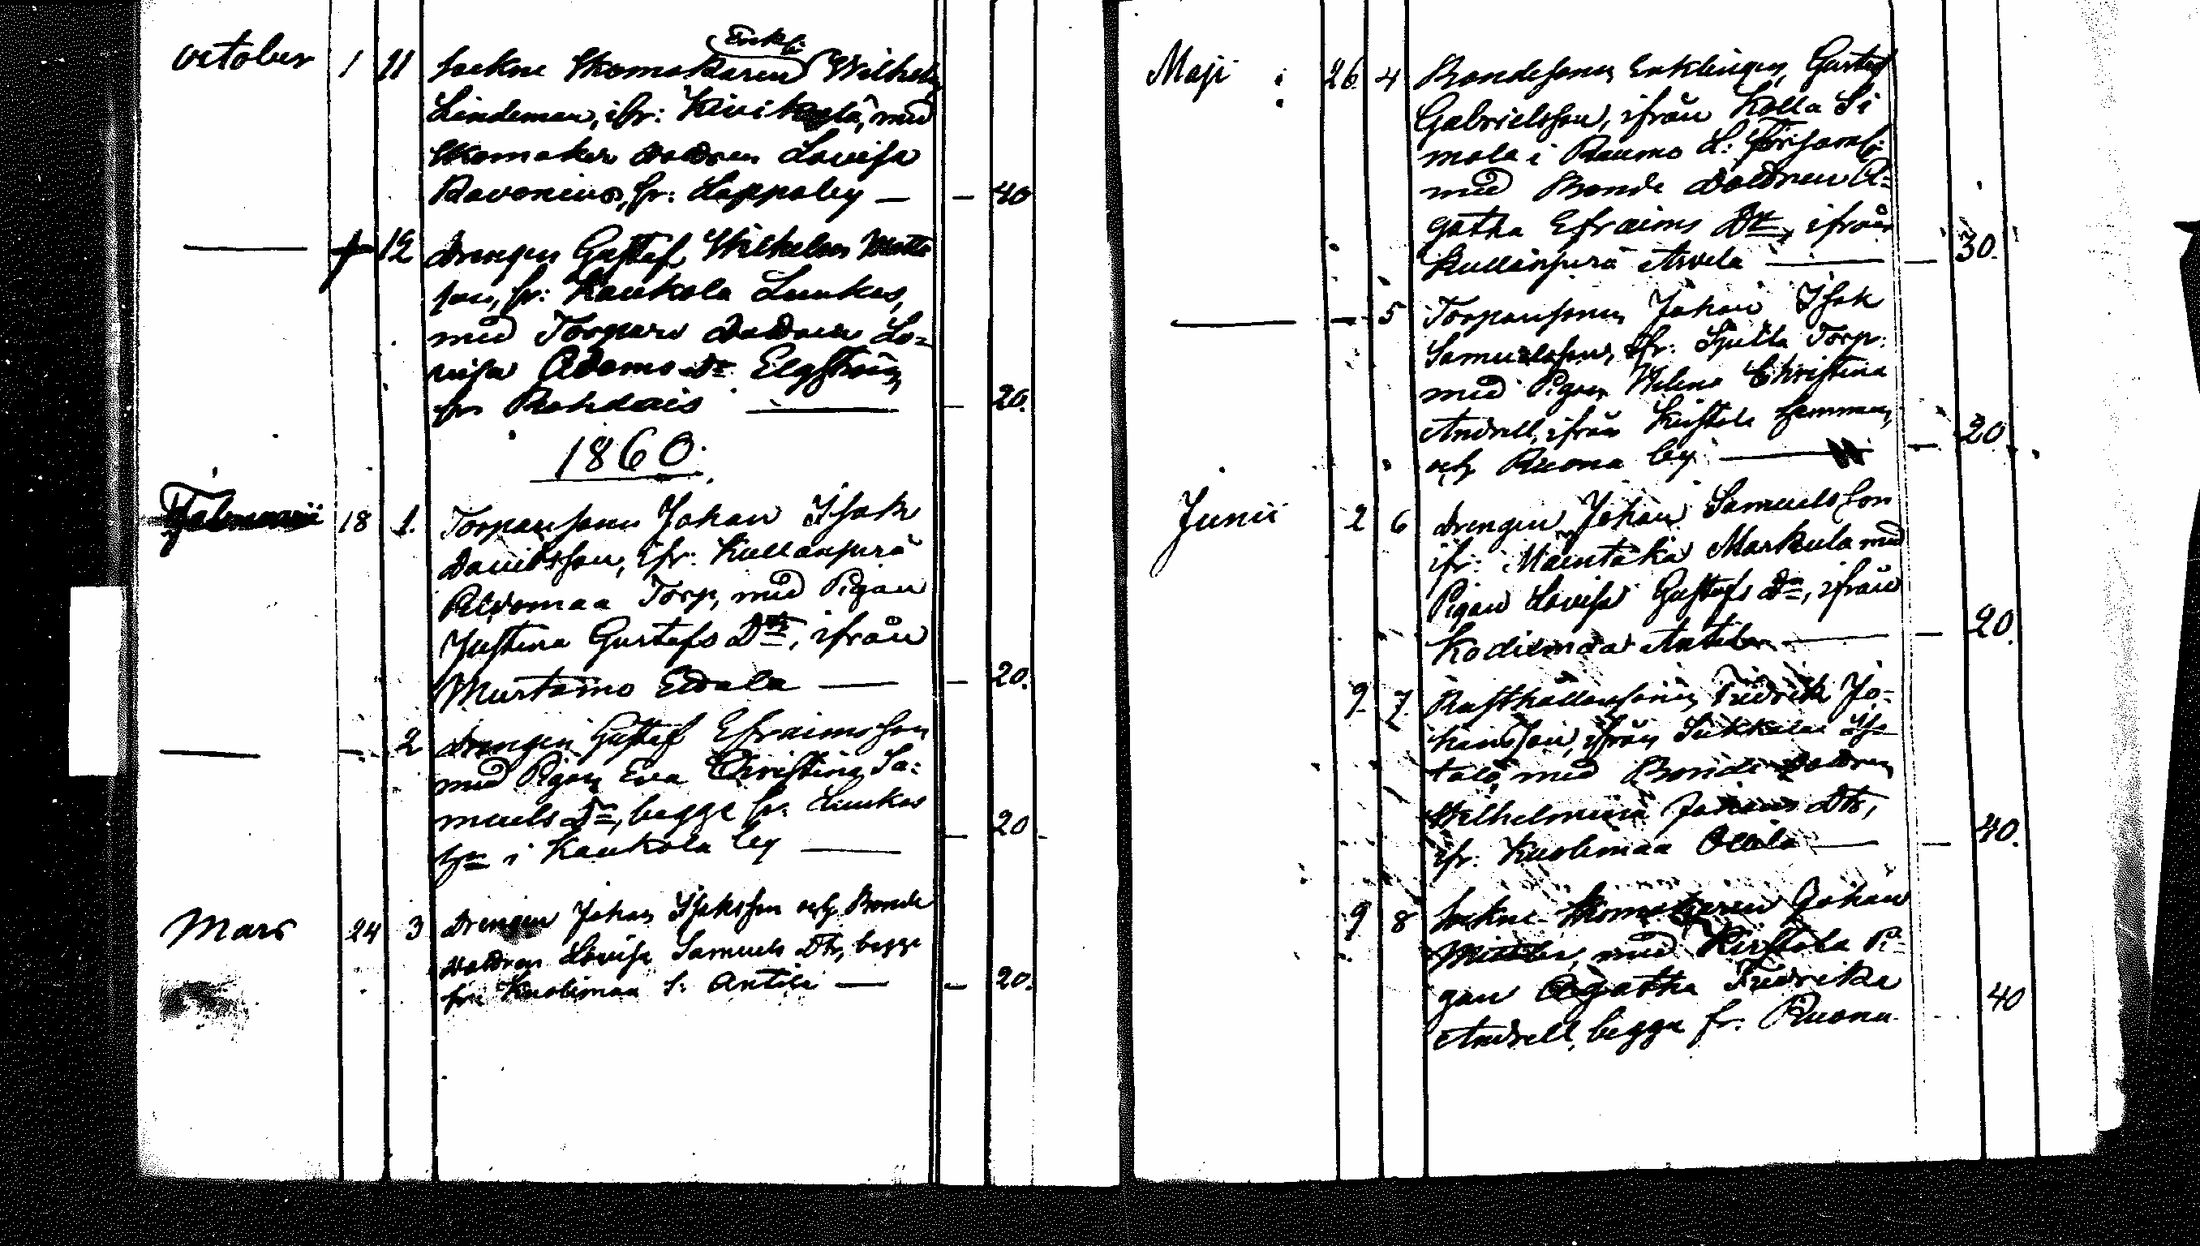 Enkl:
October 1 11 Sockne Skomakaren Wilhelm
Lindeman, ifr: Kivikylä, med
Skomakare dottren Lovisa
Ravonius, fr: Lappoby — — 40
— 12 Drengen Gustaf Wilhelm Matts
son, fr: Kaukola Luukas,
med Torpare dottren Lo=
visa Adams Dr
fr — 20.
1860.
18 1. Torparesonen Johan Isak
Davidsson, ifr: Kullanperä
Torp, med Pigan
Justina Gustafs Dtr, ifrån
Murtamo Eerola — — 20.
— — 2 Drengen Gustaf Efraimsson
med Pigan Eva Christina Sa=
muels Dr, begge fr: Luukas
hn i Kaukola by — — 20
Mars 24 3 Drengen Johan Isaksson och Bonde
dottren Lovisa Samuels Dtr, begge
från Kuolimaa S: Antila — — 20.
Maji 26. 4 Bondesonen Enklingen, Gustaf
Gabrielsson, ifrån Kolla Si
mola i Raumo L: Församl:
med Bonde dottren A=
gatha Efraims Dtr, ifrån
Kullanperä Arvela — — 30.
— — 5 Torparesonen Johan Isak
Samuelsson, ifr: Torp.
med Pigan Helena Christina
Andrell, ifrån hemman,
och Ruona by — — 20
Junii 2 6 Drengen Johan Samuelsson
ifr: Mäentaka Markula med
Pigan Lovisa Gustafs Dr, ifrån
Kodiemaa Antila — — 20.
9 7 Rusthållaresonen Fredrik Jo=
hansson, ifrån Sukkala Iso
talo, med Bonde dottren
Wilhelmina Johans Dtr,
ifr: Kuolimaa Ollila — — 40.
9 8 Sockne Skomakaren Johan
med Pi=
gan Agatha Fredrika
Andrell, begge fr: Ruona 40